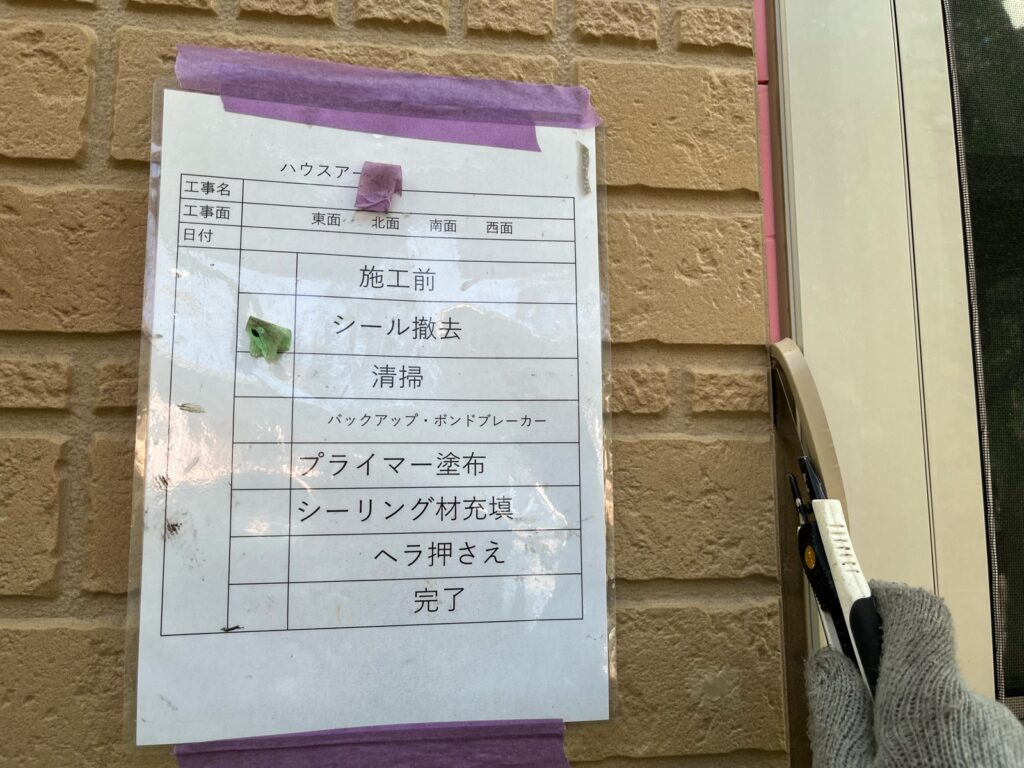 ハウスアー
工事名
工事面 東面 北面 南面 西面
日付
施工前
シール撤去
清掃
バックアップ・ボンドブレーカー
プライマー塗布
シーリング材充填
ヘラ押さえ
完了